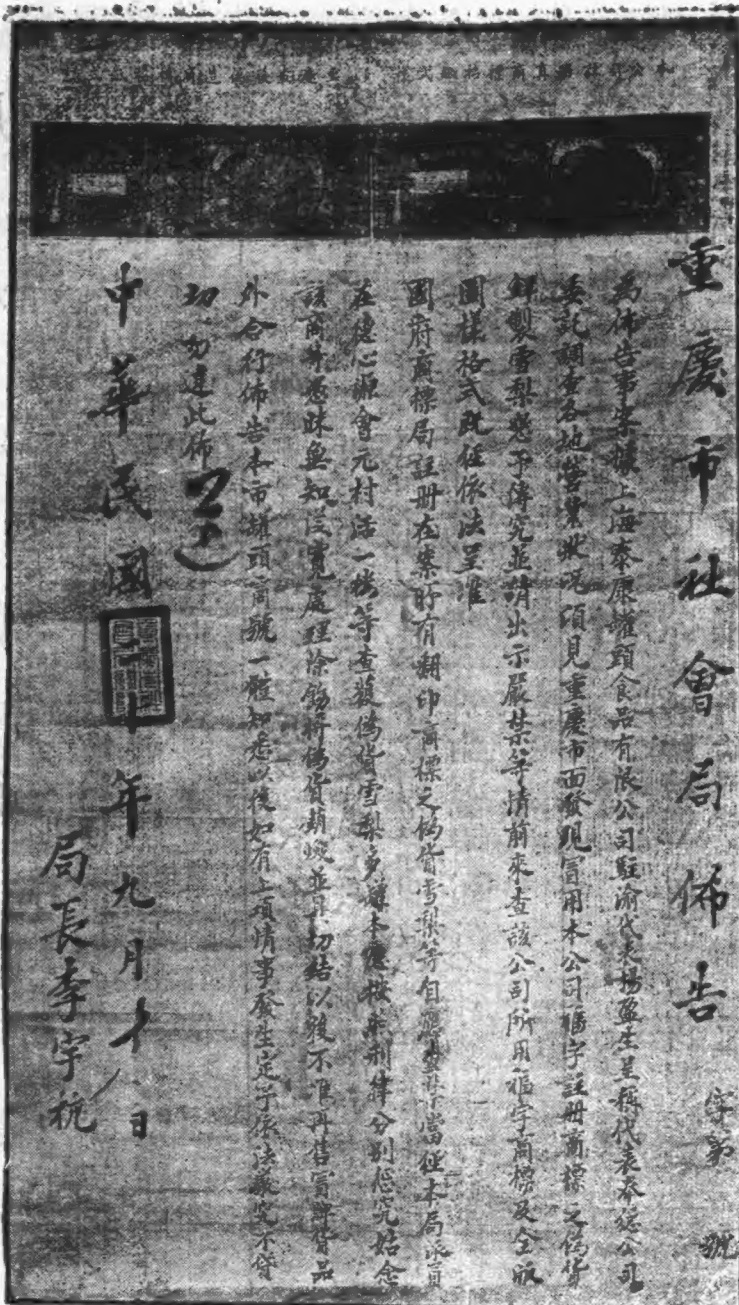 重慶市社會局佈告
字第 號
為佈告事案據上海泰康罐頭食品有限公司駐渝代表楊盈生呈稱代表奉總公司
委託調查各地營業狀況須見重慶市面發現冒用本公司福字註冊商標之偽貨
鮮製雪梨懇予傳究並請出示嚴禁等情前來查該公司所用福字商標及全版
圖樣格式既經依法呈准
國府商標局註冊在案所有翻印商標之偽貨雪梨等自應查禁當經本局派員
在德心源會元村活一樓等查獲偽貨雪梨多罐本應按照刑律分別懲究姑念
該商等愚昧無知從寬處理除飭將偽貨銷燬並具切結以後不准再售冒牌貨品
外合行佈告本市罐頭商號一體知悉以後如有上項情事發生定予依法嚴究不貸
切切勿違此佈
中華民國二十年九月十 日
局長李宇杭